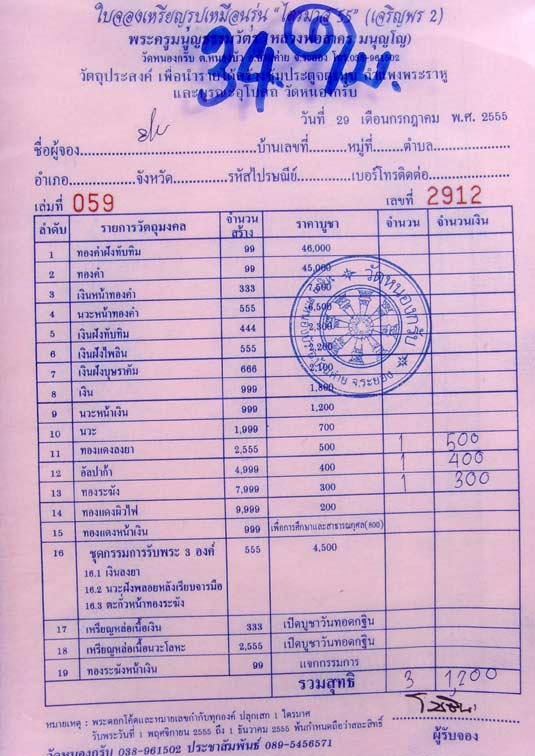 ใบจองเหรียญรูปเหมือนรุ่น "ไตรมาส 55" (เจริญพร 2)
34 ใบ
วัดหนองกรับ
วัตถุประสงค์ เพื่อนำรายได้
กำแพงพระราหู
และบูรณะอุโบสถ วัดหนองกรับ
วันที่ 29 เดือนกรกฎาคม พ.ศ. 2555
ชื่อผู้จอง..............................บ้านเลขที่..........หมู่ที่..........ตำบล....................
อำเภอ....................จังหวัด..............รหัสไปรษณีย์..............เบอร์โทรติดต่อ....................
เล่มที่ 059 เลขที่ 2912
ลำดับ รายการวัตถุมงคล จำนวนสร้าง ราคาบูชา จำนวน จำนวนเงิน
1 ทองคำฝังทับทิม 99 46,000
2 ทองคำ 99 45,000
3 เงินหน้าทองคำ 333 7,500
4 นวะหน้าทองคำ 555 6,500
5 เงินฝังทับทิม 444 2,300
6 เงินฝังไพลิน 555 2,200
7 เงินฝังบุษราคัม 666 2,100
8 เงิน 999 1,800
9 นวะหน้าเงิน 999 1,200
10 นวะ 1,999 700
11 ทองแดงลงยา 2,555 500 1 500
12 อัลปาก้า 4,999 400 1 400
13 ทองระฆัง 7,999 300 1 300
14 ทองแดงผิวไฟ 9,999 200
15 ทองแดงหน้าเงิน 999 เพื่อการศึกษาและสาธารณกุศล(800)
16 ชุดกรรมการรับพระ 3 องค์ 555 4,500
16.1 เงินลงยา
16.2 นวะฝังพลอยหลังเรียบจารมือ
16.3 ตะกั่วหน้าทองระฆัง
17 เหรียญหล่อเนื้อเงิน 333 เปิดบูชาวันทอดกฐิน
18 เหรียญหล่อเนื้อนวะโลหะ 2,555 เปิดบูชาวันทอดกฐิน
19 ทองระฆังหน้าเงิน 99 แจกกรรมการ
รวมสุทธิ 3 1,200
หมายเหตุ : พระตอกโค้ดและหมายเลขกำกับทุกองค์ ปลุกเสก 1 ไตรมาส
รับพระวันที่ 1 พฤศจิกายน 2555 ถึง 1 ธันวาคม 2555 พ้นกำหนดถือว่าสละสิทธิ์
ผู้รับจอง
วัดหนองกรับ 038-961502 ประชาสัมพันธ์ 089-5456571